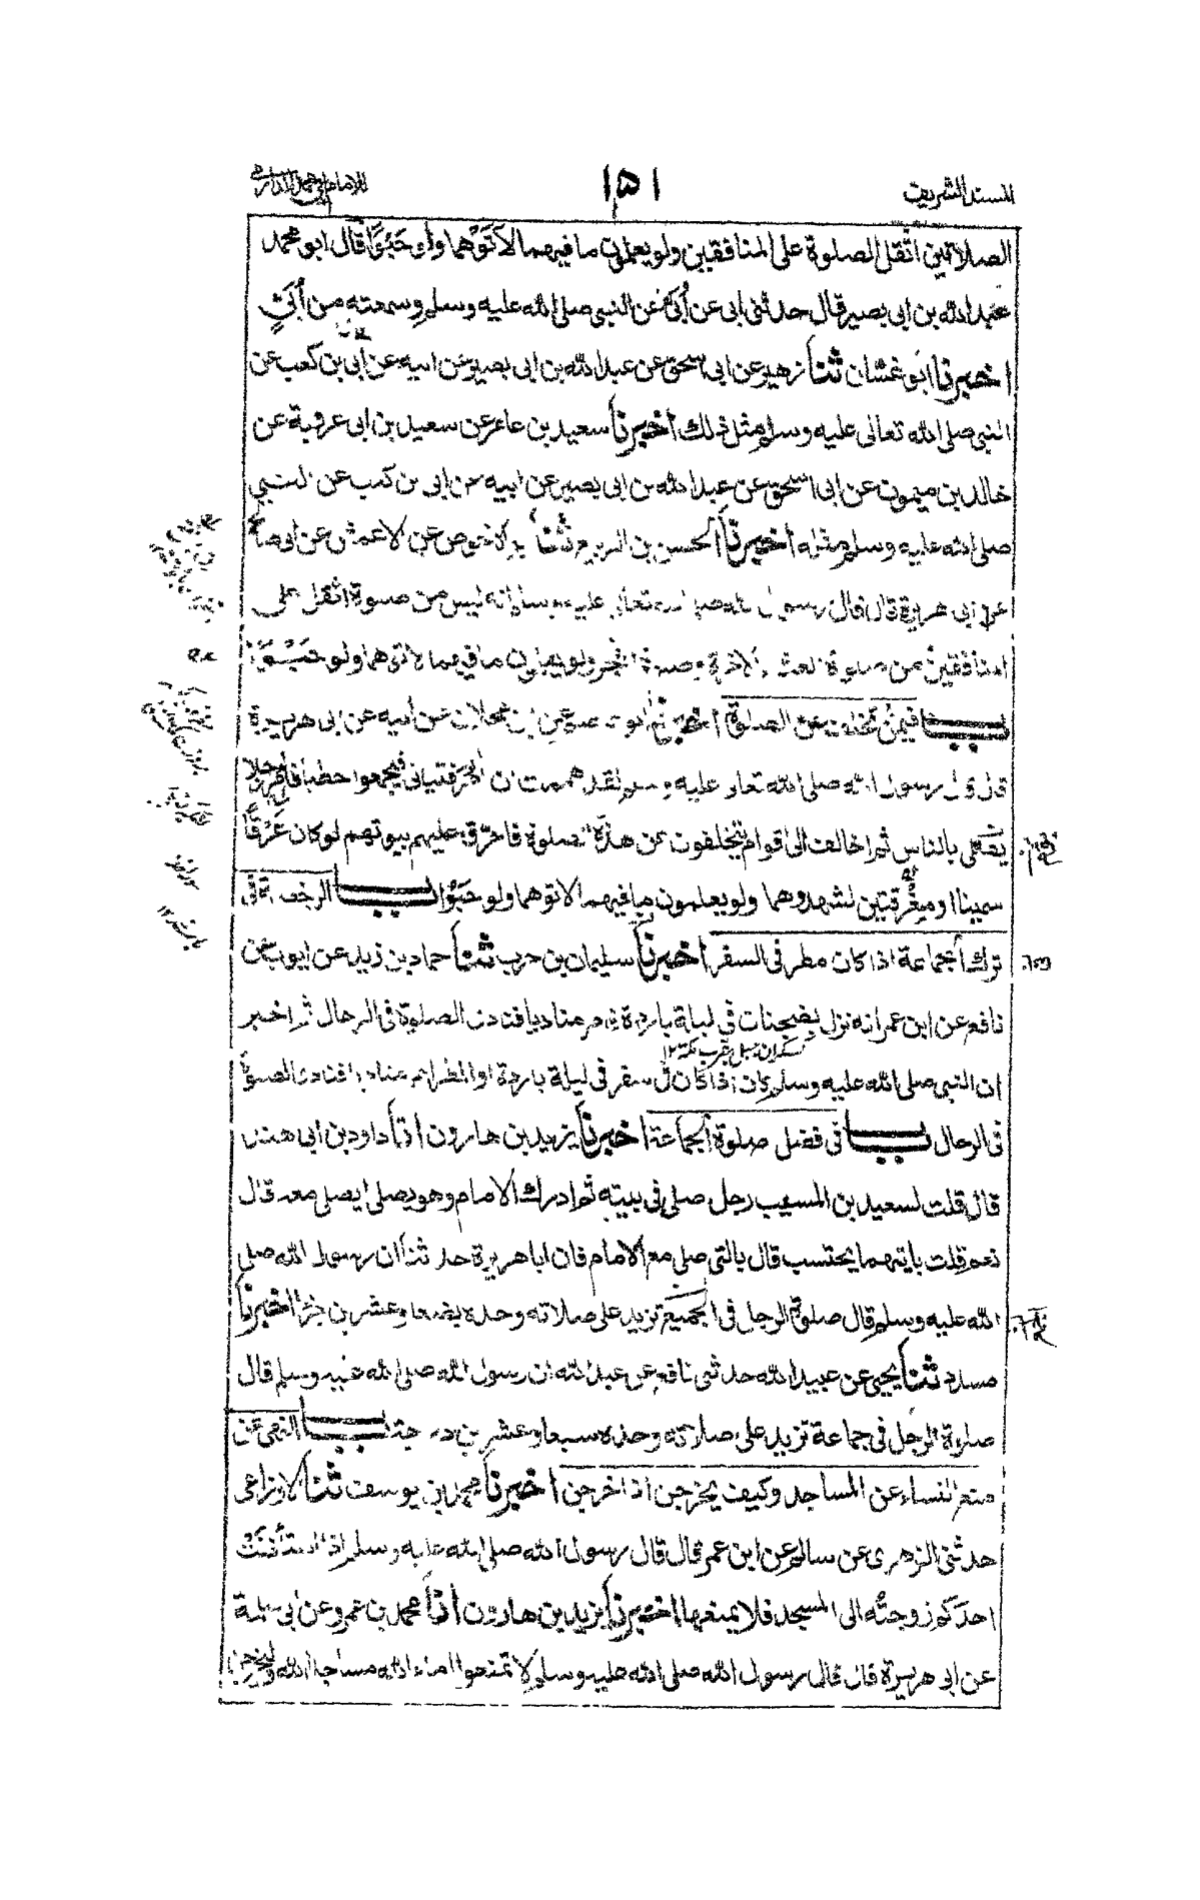 المسند الشريف
١٥١
للامام ابى محمد الدارمى
الصلاتين اثقل الصلوة على المنافقين ولو يعلمون ما فيهما لاتوهما ولو حَبْوًا قال ابو محمد
عبد الله بن ابى بصير قال حدثنى ابى عن أُبَىّ عن النبى صلى الله عليه وسلم وسمعته من أُبَىّ
اخبرنا ابو غسّان ثنا زهير عن ابى اسحق عن عبد الله بن ابى بصير عن ابيه عن ابى بن كعب عن
النبى صلى الله تعالى عليه وسلم مثل ذلك اخبرنا سعيد بن عامر عن سعيد بن ابى عروبة عن
خالد بن ميمون عن ابى اسحق عن عبد الله بن ابى بصير عن ابيه عن ابى بن كعب عن النبى
صلى الله عليه وسلم مثله اخبرنا الحسن بن الربيع ثنا ابو الاحوص عن الاعمش عن ابى صالح
عن ابى هريرة قال قال رسول الله صلى الله تعالى عليه وسلم انه ليس من صلوة اثقل على
المنافقين من صلوة العشاء الاخرة وصلوة الفجر ولو يعلمون ما فيهما لاتوهما ولو حَبْوًا
باب فيمن تخلف عن الصلوة اخبرنا ابو عاصم عن ابن عجلان عن ابيه عن ابى هريرة
قال قال رسول الله صلى الله تعالى عليه وسلم لقد هممت ان آمر فتيانى فيجمعوا حطبا فآمر رجلا
يصلى بالناس ثم اخالف الى اقوام يتخلفون عن هذه الصلوة فاحرّق عليهم بيوتهم لو كان عَرْقًا
سمينا او مِعْرقتين لشهدوهما ولو يعلمون ما فيهما لاتوهما ولو حَبْوًا باب الرخصة فى
ترك الجماعة اذا كان مطر فى السفر اخبرنا سليمان بن حرب ثنا حماد بن زيد عن ايوب عن
نافع عن ابن عمر انه نزل بضجنان فى ليلة باردة فامر مناديا فنادى الصلوة فى الرحال ثم اخبر
ان النبى صلى الله عليه وسلم كان اذا كان فى سفر فى ليلة باردة او المطر امر مناديا فنادى الصلوة
فى الرحال باب فى فضل صلوة الجماعة اخبرنا يزيد بن هارون انأ داود بن ابى هند
قال قلت لسعيد بن المسيب رجل صلى فى بيته ثم ادرك الامام وهو يصلى ايصلى معه قال
نعم قلت بايتهما يحتسب قال بالتى صلى مع الامام فان ابا هريرة حدثنا ان رسول الله صلى
الله عليه وسلم قال صلوة الرجل فى الجميع تزيد على صلاته وحده بضعا وعشرين جزأ اخبرنا
مسدد ثنا يحيى عن عبيد الله حدثنى نافع عن عبد الله ان رسول الله صلى الله عليه وسلم قال
صلوة الرجل فى جماعة تزيد على صلاته وحده سبعا وعشرين درجة باب النهى عن
منع النساء عن المساجد وكيف يخرجن اذا خرجن اخبرنا محمد بن يوسف ثنا الاوزاعى
حدثنى الزهرى عن سالم عن ابن عمر قال قال رسول الله صلى الله عليه وسلم اذا استأذنت
احدكم زوجته الى المسجد فلا يمنعها اخبرنا يزيد بن هارون انأ محمد بن عمرو عن ابى سلمة
عن ابى هريرة قال قال رسول الله صلى الله عليه وسلم لا تمنعوا اماء الله مساجد الله وليخرجن